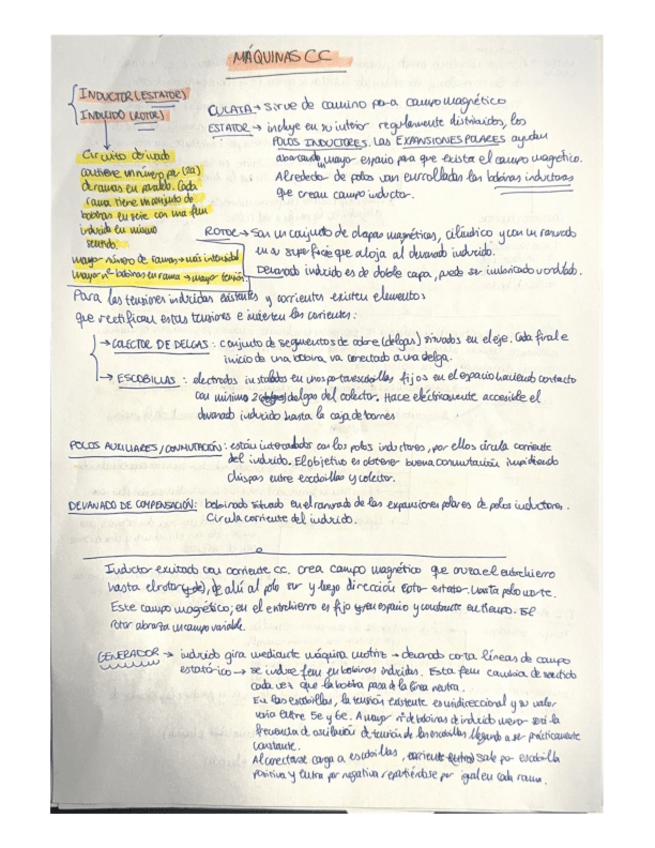 MÁQUINAS CC
INDUCTOR (ESTATOR)
INDUCIDO (ROTOR)
Circuito derivado
contiene un número par (2a)
de ramas en paralelo. Cada
rama tiene un conjunto de
bobinas en serie con una fem
inducida en mismo
sentido.
mayor número de ramas → más intensidad
Mayor nº bobinas en rama → mayor tensión.
CULATA → sirve de camino para campo magnético
ESTATOR → incluye en su interior regularmente distribuidos, los
POLOS INDUCTORES. Las EXPANSIONES POLARES ayudan
abarcando mayor espacio para que exista el campo magnético.
Alrededor de polos van enrolladas las bobinas inductoras
que crean campo inductor.
ROTOR → Son un conjunto de chapas magnéticas, cilíndrico y con un ranurado
en su superficie que aloja al devanado inducido.
Devanado inducido es de doble capa, puede ser imbricado u ondulado.
Para las tensiones inducidas existentes y corrientes existen elementos
que rectifican estas tensiones e invierten las corrientes:
→ COLECTOR DE DELGAS: conjunto de segmentos de cobre (delgas) situados en el eje. Cada final e
inicio de una bobina va conectado a una delga.
→ ESCOBILLAS: electrodos instalados en unos portaescobillas fijos en el espacio haciendo contacto
con mínimo 2 delgas del colector. Hace eléctricamente accesible el
devanado inducido hasta la caja de bornes
POLOS AUXILIARES/CONMUTACIÓN: están intercalados con los polos inductores, por ellos circula corriente
del inducido. El objetivo es obtener buena conmutación impidiendo
chispas entre escobillas y colector.
DEVANADO DE COMPENSACIÓN: bobinado situado en el ranurado de las expansiones polares de polos inductores.
Circula corriente del inducido.
Inductor excitado con corriente cc. crea campo magnético que cruza el entrehierro
hasta el rotor, de ahí al polo sur y luego dirección estator hasta polo norte.
Este campo magnético; en el entrehierro es fijo en espacio y constante en tiempo. El
rotor abraza un campo variable.
GENERADOR → inducido gira mediante máquina motriz → devanado corta líneas de campo
estatórico → se induce fem en bobinas inducidas. Esta fem cambia de sentido
cada vez que la bobina pasa de la línea neutra.
En las escobillas, la tensión existente es unidireccional y su valor
varía entre 5e y 6e. A mayor nº de bobinas de inducido menor será la
frecuencia de oscilación de tensión de las escobillas llegando a ser prácticamente
constante.
Al conectarse carga a escobillas, corriente sale por escobilla
positiva y entra por negativa repartiéndose por igual en cada rama.